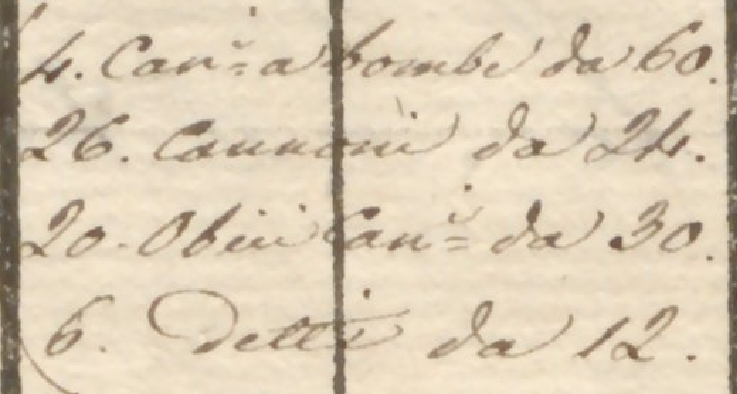 4. Can.i a bombe da 60.
26. Cannoni da 24.
20. Obici Can.i da 30.
6. Detti da 12.